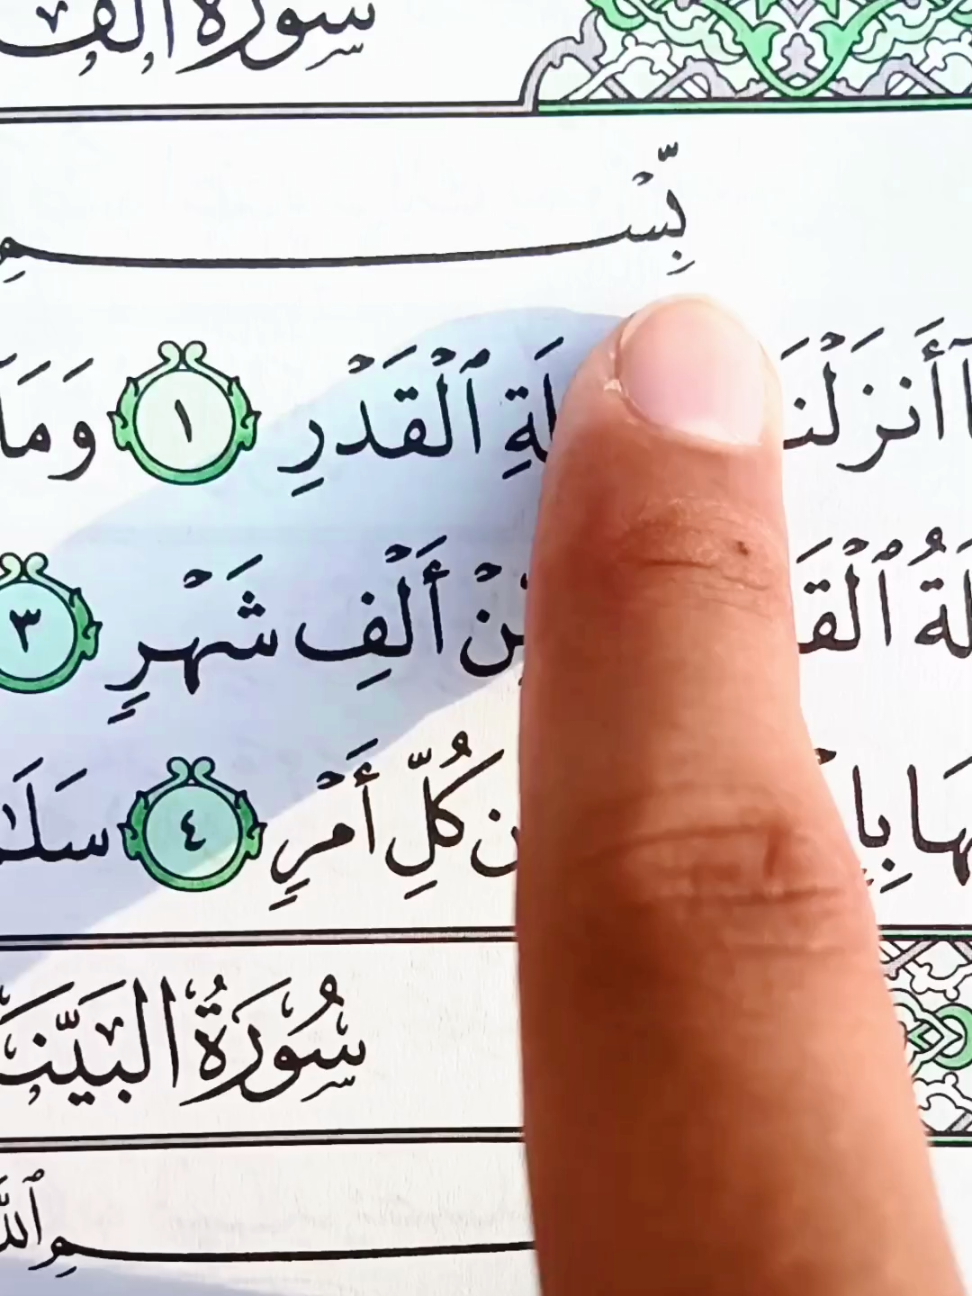 سورة
بِّسْمِ
أَنزَلْنَ لَةِ ٱلْقَدْرِ ١ وَمَا
لَةُ ٱلْقَ مِّنْ أَلْفِ شَهْرٍ ٣
هَا بِإِ ن كُلِّ أَمْرٍ ٤ سَلَٰ
سُورَةُ البَيِّنَ
ـمِ ٱللَّ